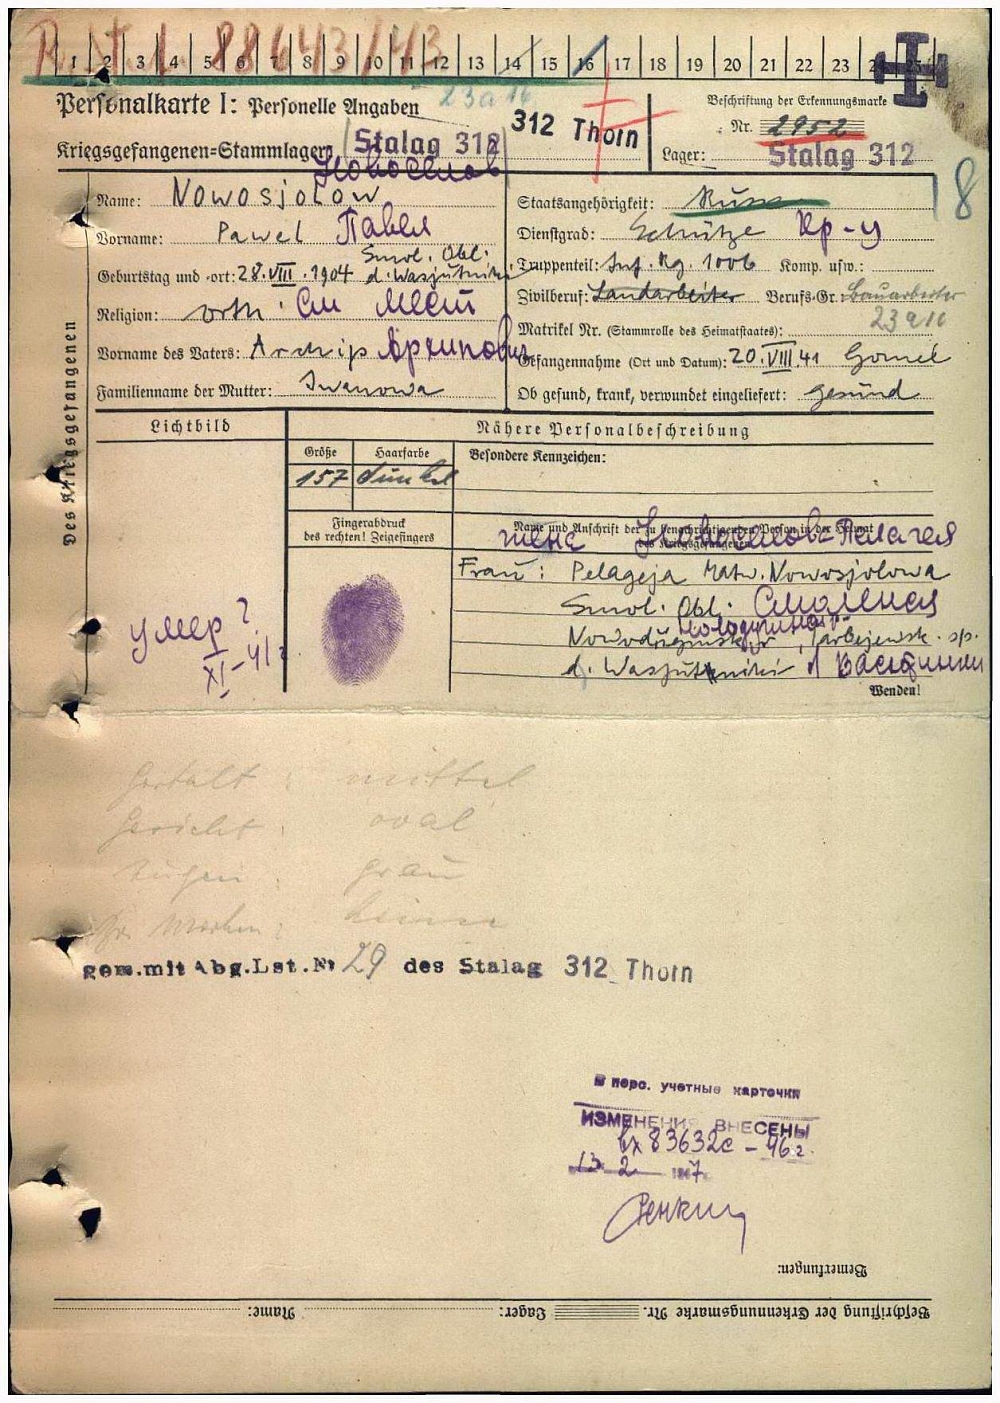 R.N.L. 88643/43
1 2 3 4 5 6 7 8 9 10 11 12 13 14 15 16 17 18 19 20 21 22 23 24 25
Personalkarte I: Personelle Angaben
23a16
Kriegsgefangenen=Stammlager: Stalag 312
312 Thorn
Beschriftung der Erkennungsmarke
Nr. 2952
Lager: Stalag 312
8
Des Kriegsgefangenen
Новоселов
Name: Nowosjolow
Vorname: Pawel Павел
Smol. Obl.
Geburtstag und =ort: 28.VIII.1904 d. Wasjutniki
Religion: orth.
Vorname des Vaters: Archip Архипович
Familienname der Mutter: Iwanowa
Staatsangehörigkeit: Russe
Dienstgrad: Schütze Кр-ц
Truppenteil: Inf. Rg. 1006 Komp. usw.:
Zivilberuf: Landarbeiter Berufs-Gr.: Bauarbeiter
23a16
Matrikel Nr. (Stammrolle des Heimatstaates):
Gefangennahme (Ort und Datum): 20.VIII.41 Gomel
Ob gesund, krank, verwundet eingeliefert: gesund
Lichtbild
Nähere Personalbeschreibung
Größe Haarfarbe
157 dunkel
Besondere Kennzeichen:
Fingerabdruck
des rechten! Zeigefingers
Name und Anschrift der zu benachrichtigenden Person in der Heimat
des Kriegsgefangenen
жена Новоселова Пелагея
Frau: Pelageja Matw. Nowosjolowa
Smol. Obl. Смоленская
d. Wasjutniki
Wenden!
умер
XI-41г.
Gestalt: mittel
Gesicht: oval
Augen: grau
keine
gem.mit Abg.Lst.Nr 29 des Stalag 312 Thorn
В перс. учетные карточки
ИЗМЕНЕНИЯ ВНЕСЕНЫ
вх 83632с - 46г.
13 2 1947
Bemerkungen:
Beschriftung der Erkennungsmarke Nr. Lager: Name: